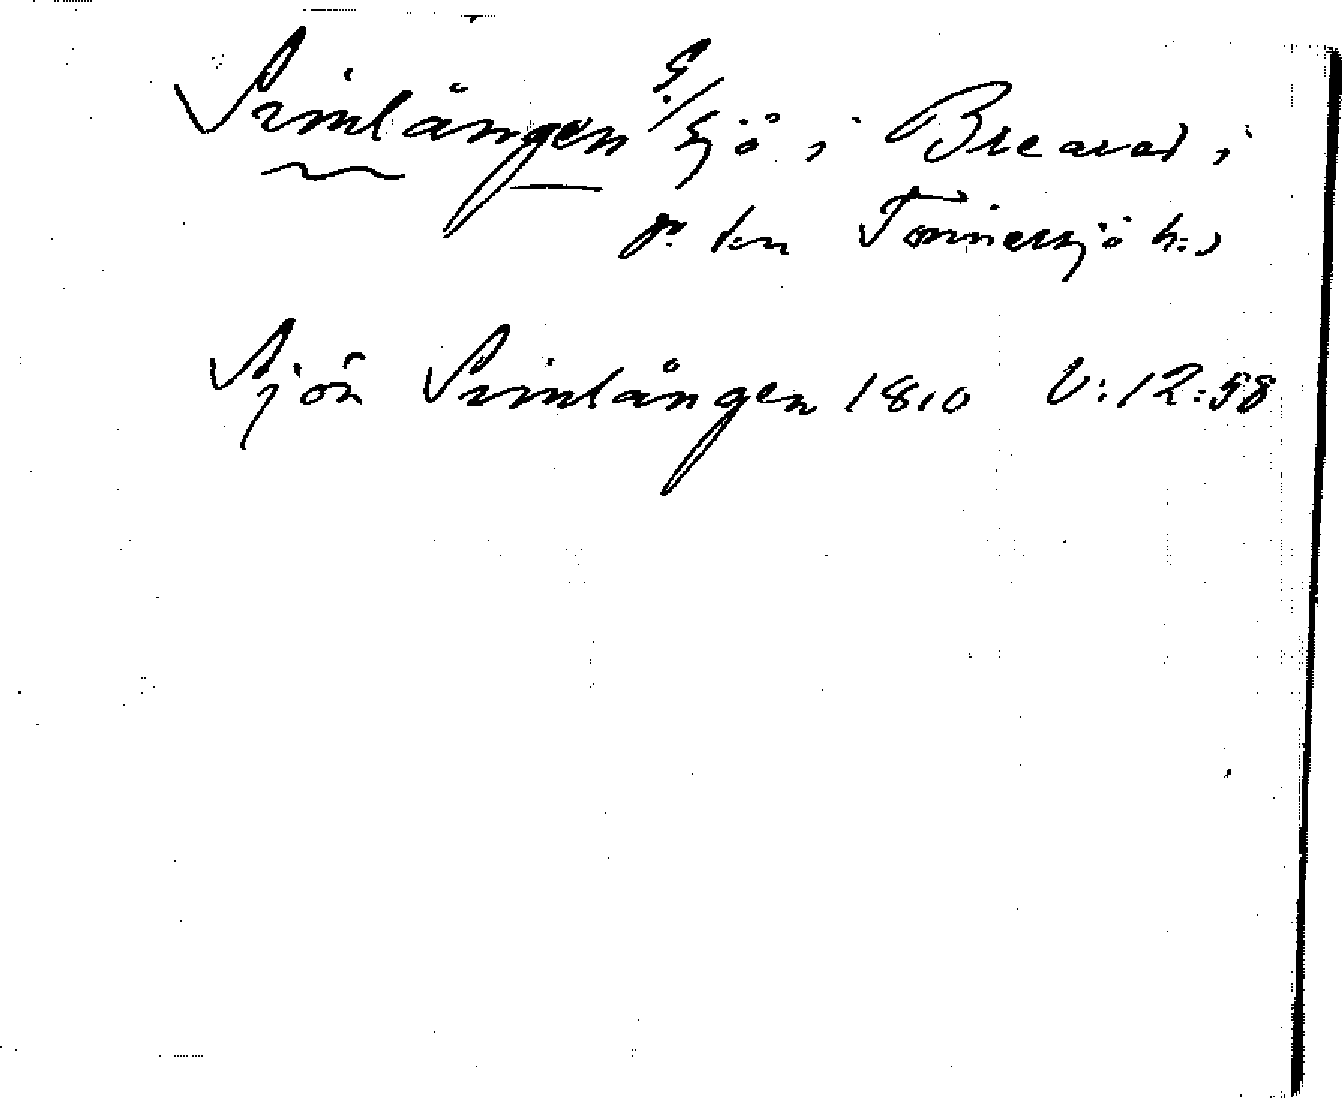 Simlången S./ sjö i Breared i
Tönnersjö h:d
Sjön Simlången 1810 V:12:58